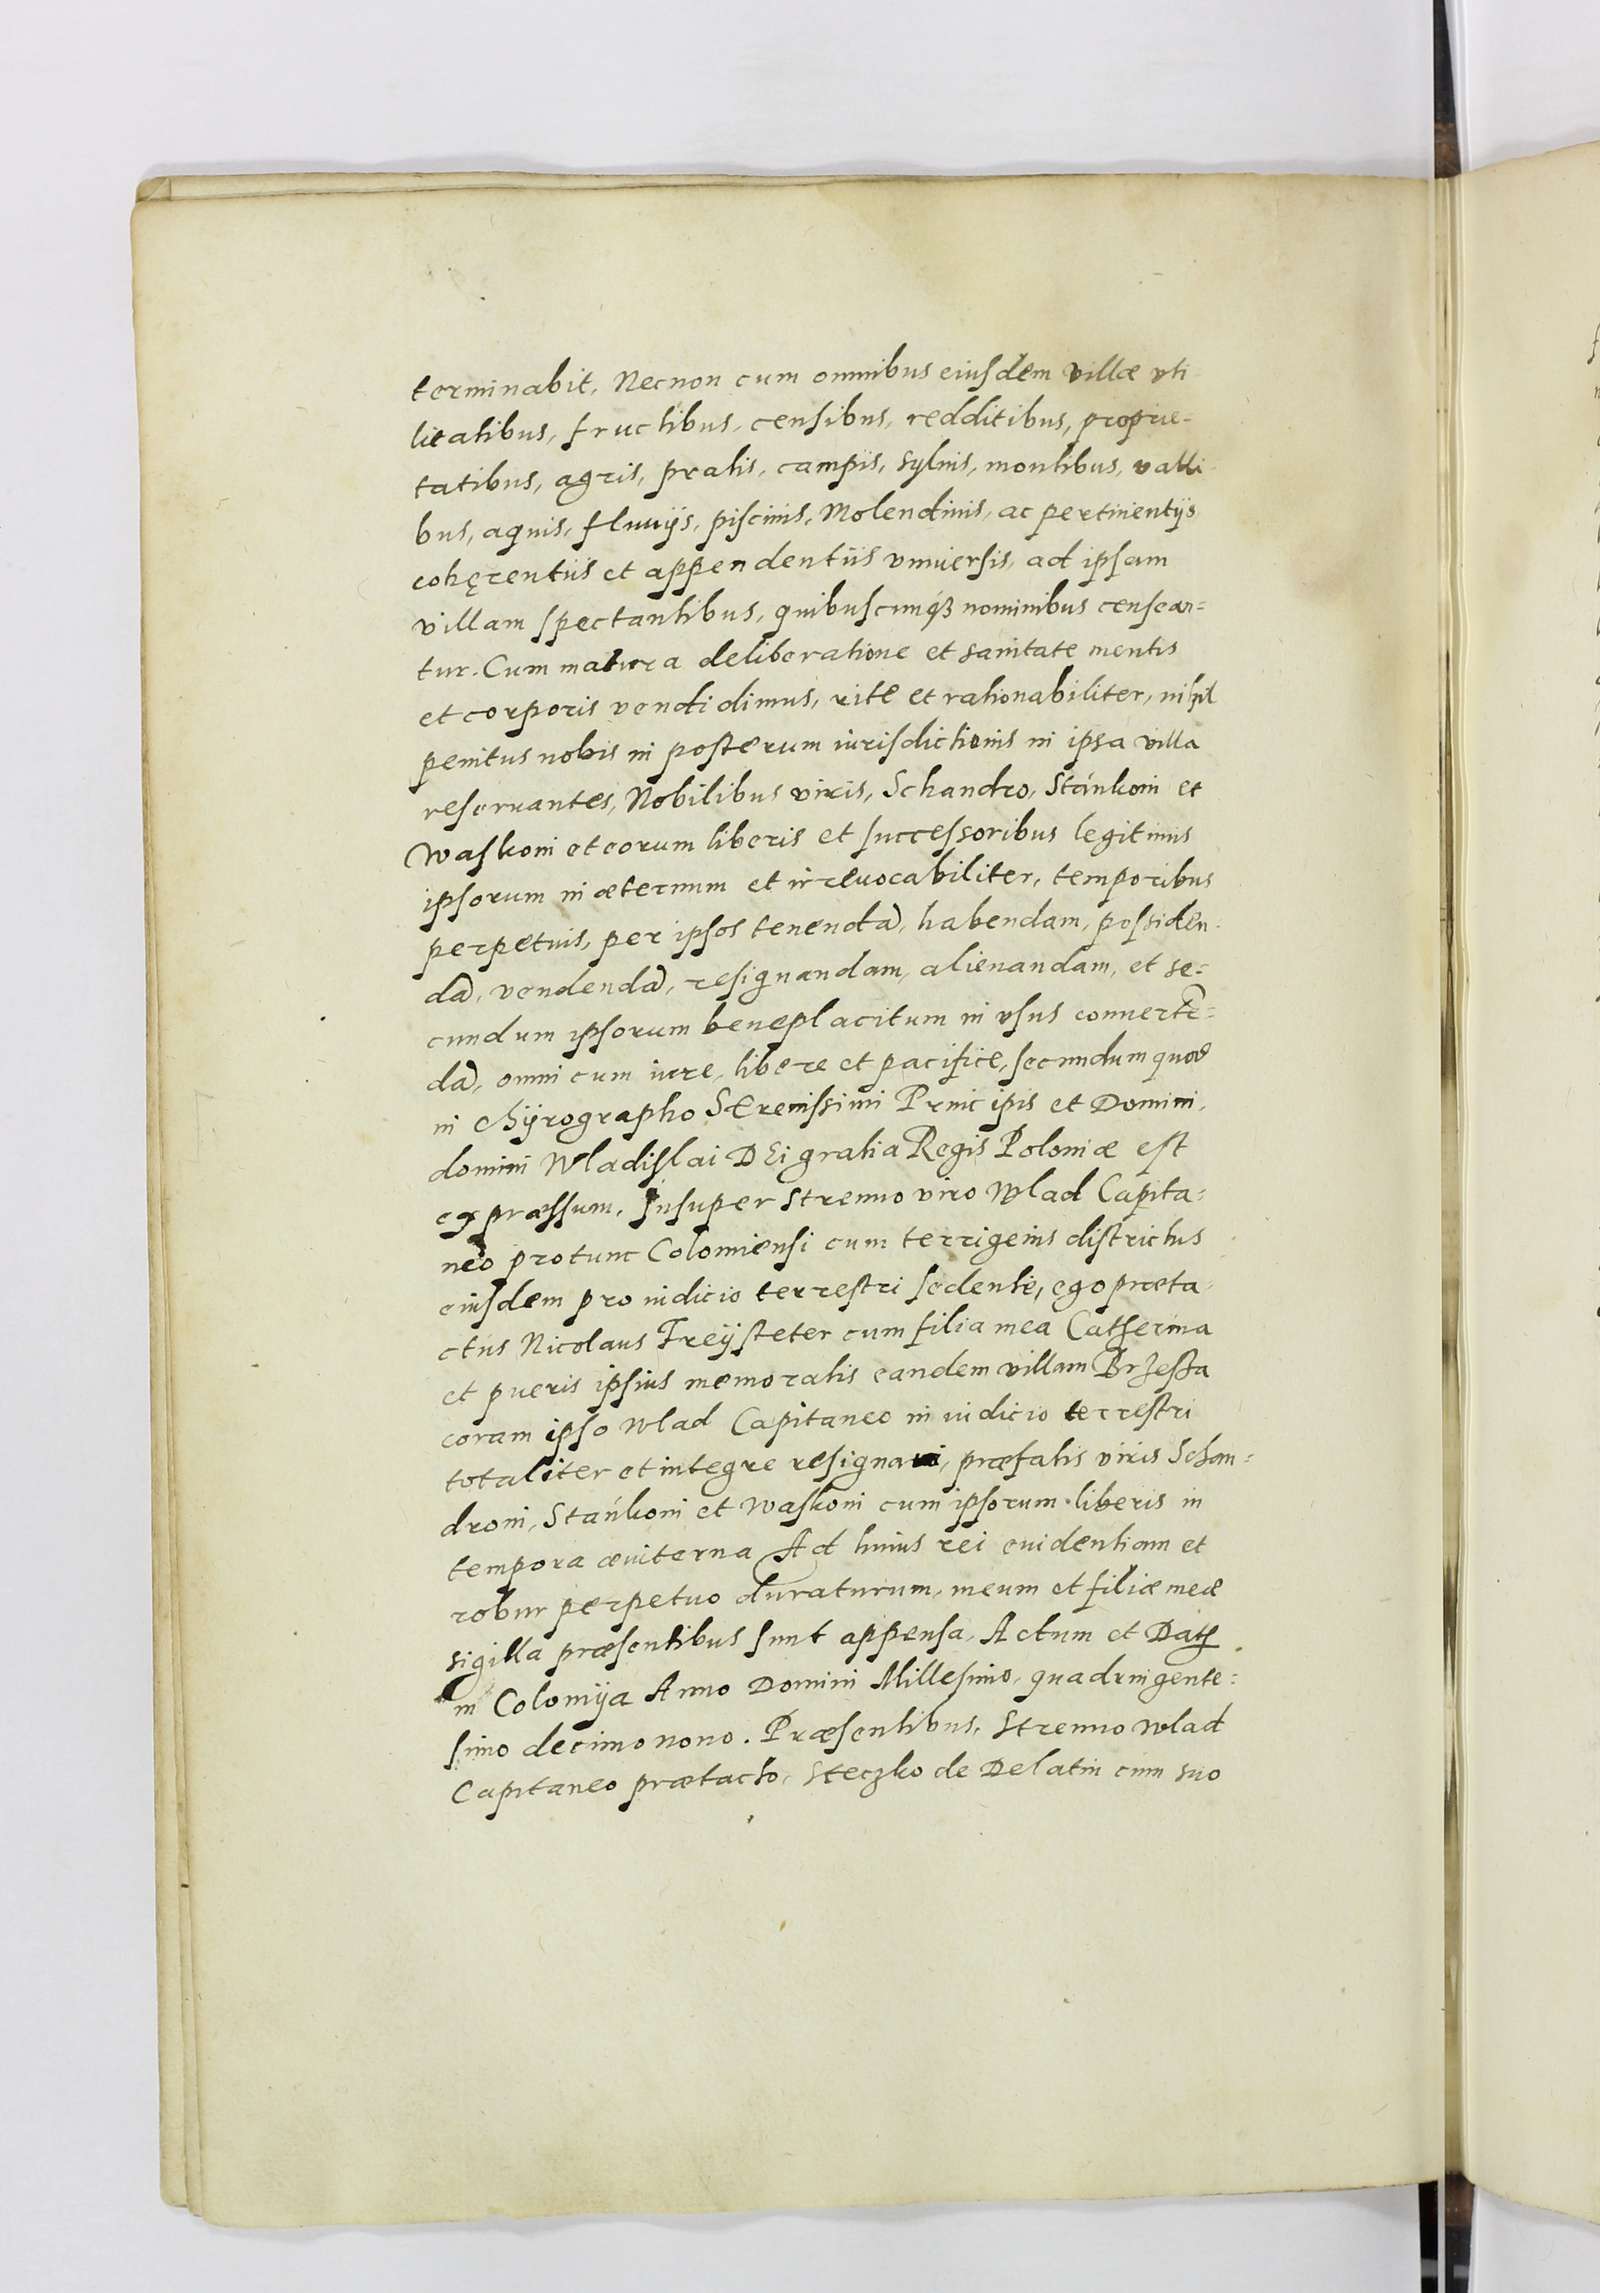 terminabit, Necnon cum omnibus eiusdem villæ vti
litatibus, fructibus, censibus, redditibus, proprie=
tatibus, agris, pratis, campis, syluis, montibus, valli
bus, aquis, fluuijs, piscinis, Molendinis, ac pertinentijs
cohęrentiis et appendentiis vniuersis, ad ipsam
villam spectantibus, quibuscunq́ꝫ nominibus censean=
tur. Cum matura deliberatione et sanitate mentis
et corporis vendidimus, rite et rationabiliter, nihil
penitus nobis in posterum iurisdictionis in ipsa villa
reseruantes, Nobilibus viris, Schandro, Stánkoni et
Waskoni et eorum liberis et successoribus legitimis
ipsorum in æternum et irreuocabiliter, temporibus
perpetuis, per ipsos tenendã, habendam, possiden
dã, vendendã, resignandam, alienandam, et se=
cundum ipsorum beneplacitum in vsus conuertẽ=
dã, omni cum iure, libere et pacifice, secundum quod
in chyrographo SErenissimi Principis et Domini,
domini Wladislai DEi gratia Regis Poloniæ est
expræssum, Insuper strenuo viro Wlad Capita=
neo protunc Colomiensi cum terrigenis districtus
eiusdem pro iudicio terrestri sedente, ego præta
ctus Nicolaus Freÿsteter cum filia mea Catherina
et pueris ipsius memoratis eandem villam Brzesta
coram ipso Wlad Capitaneo in iudicio terrestri
totaliter et integre resignaui, præfatis viris Schan=
droni, Stańkoni et Waskoni cum ipsorum liberis in
tempora æuiterna Ad huius rei euidentiam et
robur perpetuo duraturum, meum et filiæ meæ
sigilla præsentibus sunt appensa, Actum et Datꝭ
in Colomÿa Anno Domini Millesimo, quadringente=
simo decimo nono. Præsentibus, Strenuo Wlad
Capitaneo prætacto, Steczko de Delatin cum suo